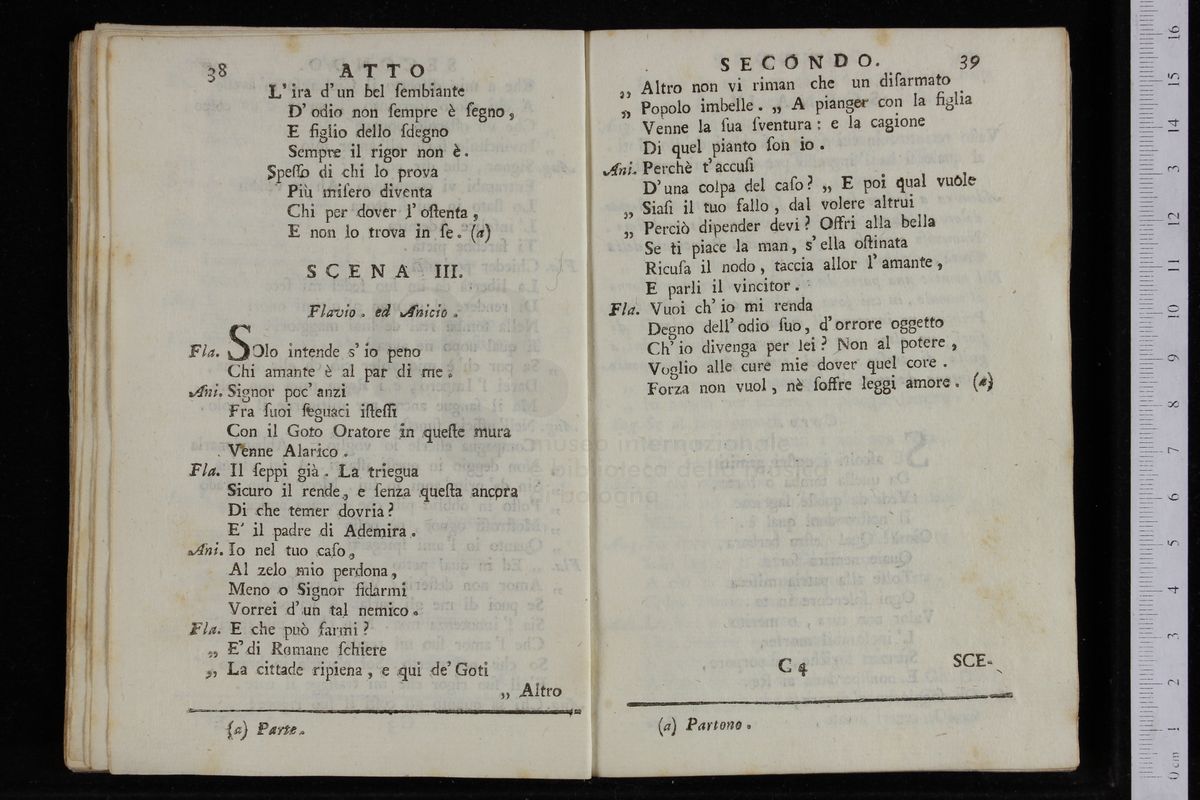 38 ATTO
L' ira d'un bel ſembiante
D' odio non ſempre è ſegno,
E figlio dello ſdegno
Sempre il rigor non è.
Speſſo di chi lo prova
Più miſero diventa
Chi per dover l' oſtenta,
E non lo trova in ſe. (a)
SCENA III.
Flavio, ed Anicio.
Fla. SOlo intende s' io peno
Chi amante è al par di me.
Ani. Signor poc' anzi
Fra ſuoi ſeguaci iſteſſi
Con il Goto Oratore in queſte mura
Venne Alarico.
Fla. Il ſeppi già. La triegua
Sicuro il rende, e ſenza queſta ancora
Di che temer dovria?
E' il padre di Ademira.
Ani. Io nel tuo caſo,
Al zelo mio perdona,
Meno o Signor fidarmi
Vorrei d' un tal nemico.
Fla. E che può farmi?
„ E' di Romane ſchiere
„ La cittade ripiena, e qui de' Goti
„ Altro
(a) Parte.
SECONDO. 39
„ Altro non vi riman che un diſarmato
„ Popolo imbelle. „ A pianger con la figlia
Venne la ſua ſventura: e la cagione
Di quel pianto ſon io.
Ani. Perchè t'accuſi
D'una colpa del caſo? „ E poi qual vuole
„ Siaſi il tuo fallo, dal volere altrui
„ Perciò dipender devi? Offri alla bella
Se ti piace la man, s' ella oſtinata
Ricuſa il nodo, taccia allor l' amante,
E parli il vincitor.
Fla. Vuoi ch' io mi renda
Degno dell' odio ſuo, d' orrore oggetto
Ch' io divenga per lei? Non al potere,
Voglio alle cure mie dover quel core.
Forza non vuol, nè ſoffre leggi amore. (a)
C 4 SCE-
(a) Partono.
museo internazionale
biblioteca della musica
di bologna
0 cm 1 2 3 4 5 6 7 8 9 10 11 12 13 14 15 16